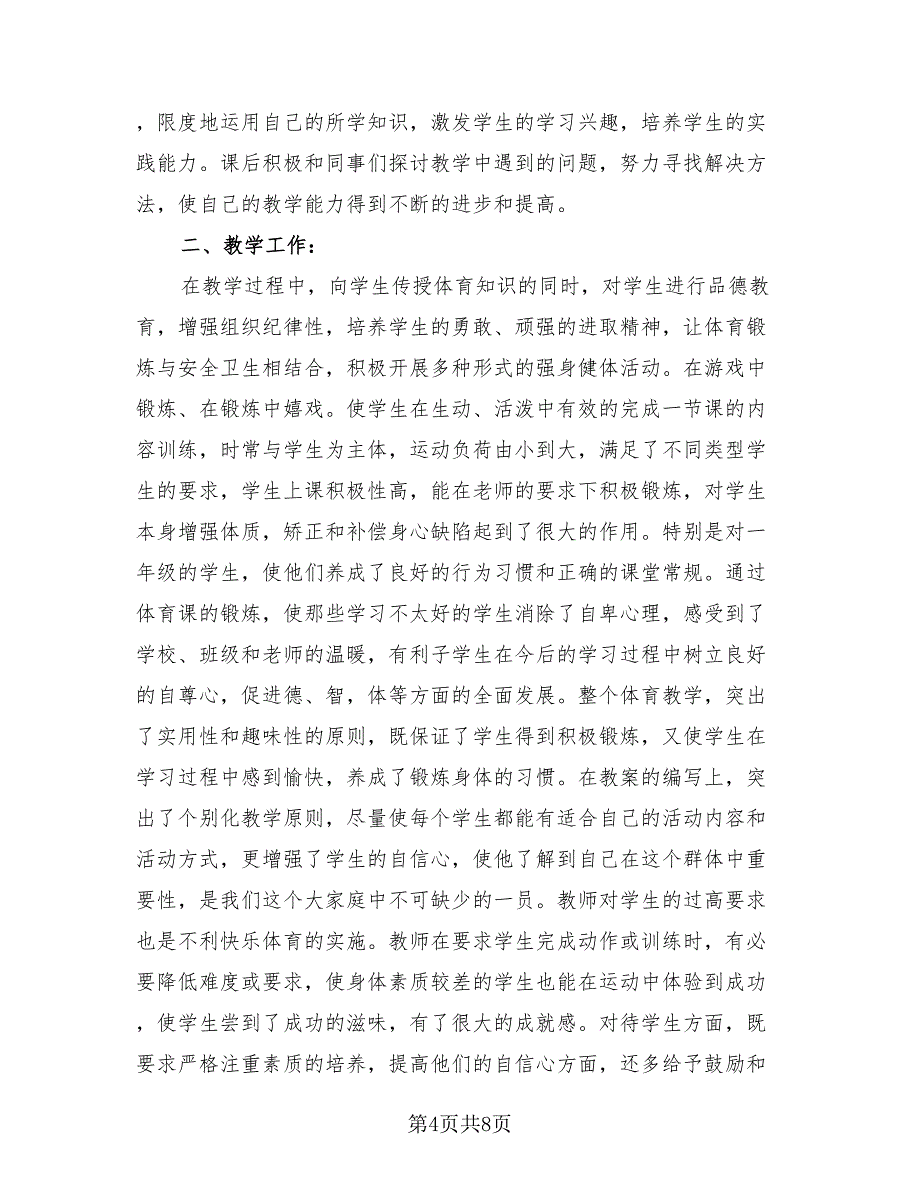 ，限度地运用自己的所学知识，激发学生的学习兴趣，培养学生的实
践能力。课后积极和同事们探讨教学中遇到的问题，努力寻找解决方
法，使自己的教学能力得到不断的进步和提高。
二、教学工作：
在教学过程中，向学生传授体育知识的同时，对学生进行品德教
育，增强组织纪律性，培养学生的勇敢、顽强的进取精神，让体育锻
炼与安全卫生相结合，积极开展多种形式的强身健体活动。在游戏中
锻炼、在锻炼中嬉戏。使学生在生动、活泼中有效的完成一节课的内
容训练，时常与学生为主体，运动负荷由小到大，满足了不同类型学
生的要求，学生上课积极性高，能在老师的要求下积极锻炼，对学生
本身增强体质，矫正和补偿身心缺陷起到了很大的作用。特别是对一
年级的学生，使他们养成了良好的行为习惯和正确的课堂常规。通过
体育课的锻炼，使那些学习不太好的学生消除了自卑心理，感受到了
学校、班级和老师的温暖，有利子学生在今后的学习过程中树立良好
的自尊心，促进德、智，体等方面的全面发展。整个体育教学，突出
了实用性和趣味性的原则，既保证了学生得到积极锻炼，又使学生在
学习过程中感到愉快，养成了锻炼身体的习惯。在教案的编写上，突
出了个别化教学原则，尽量使每个学生都能有适合自己的活动内容和
活动方式，更增强了学生的自信心，使他了解到自己在这个群体中重
要性，是我们这个大家庭中不可缺少的一员。教师对学生的过高要求
也是不利快乐体育的实施。教师在要求学生完成动作或训练时，有必
要降低难度或要求，使身体素质较差的学生也能在运动中体验到成功
，使学生尝到了成功的滋味，有了很大的成就感。对待学生方面，既
要求严格注重素质的培养，提高他们的自信心方面，还多给予鼓励和
第4页共8页